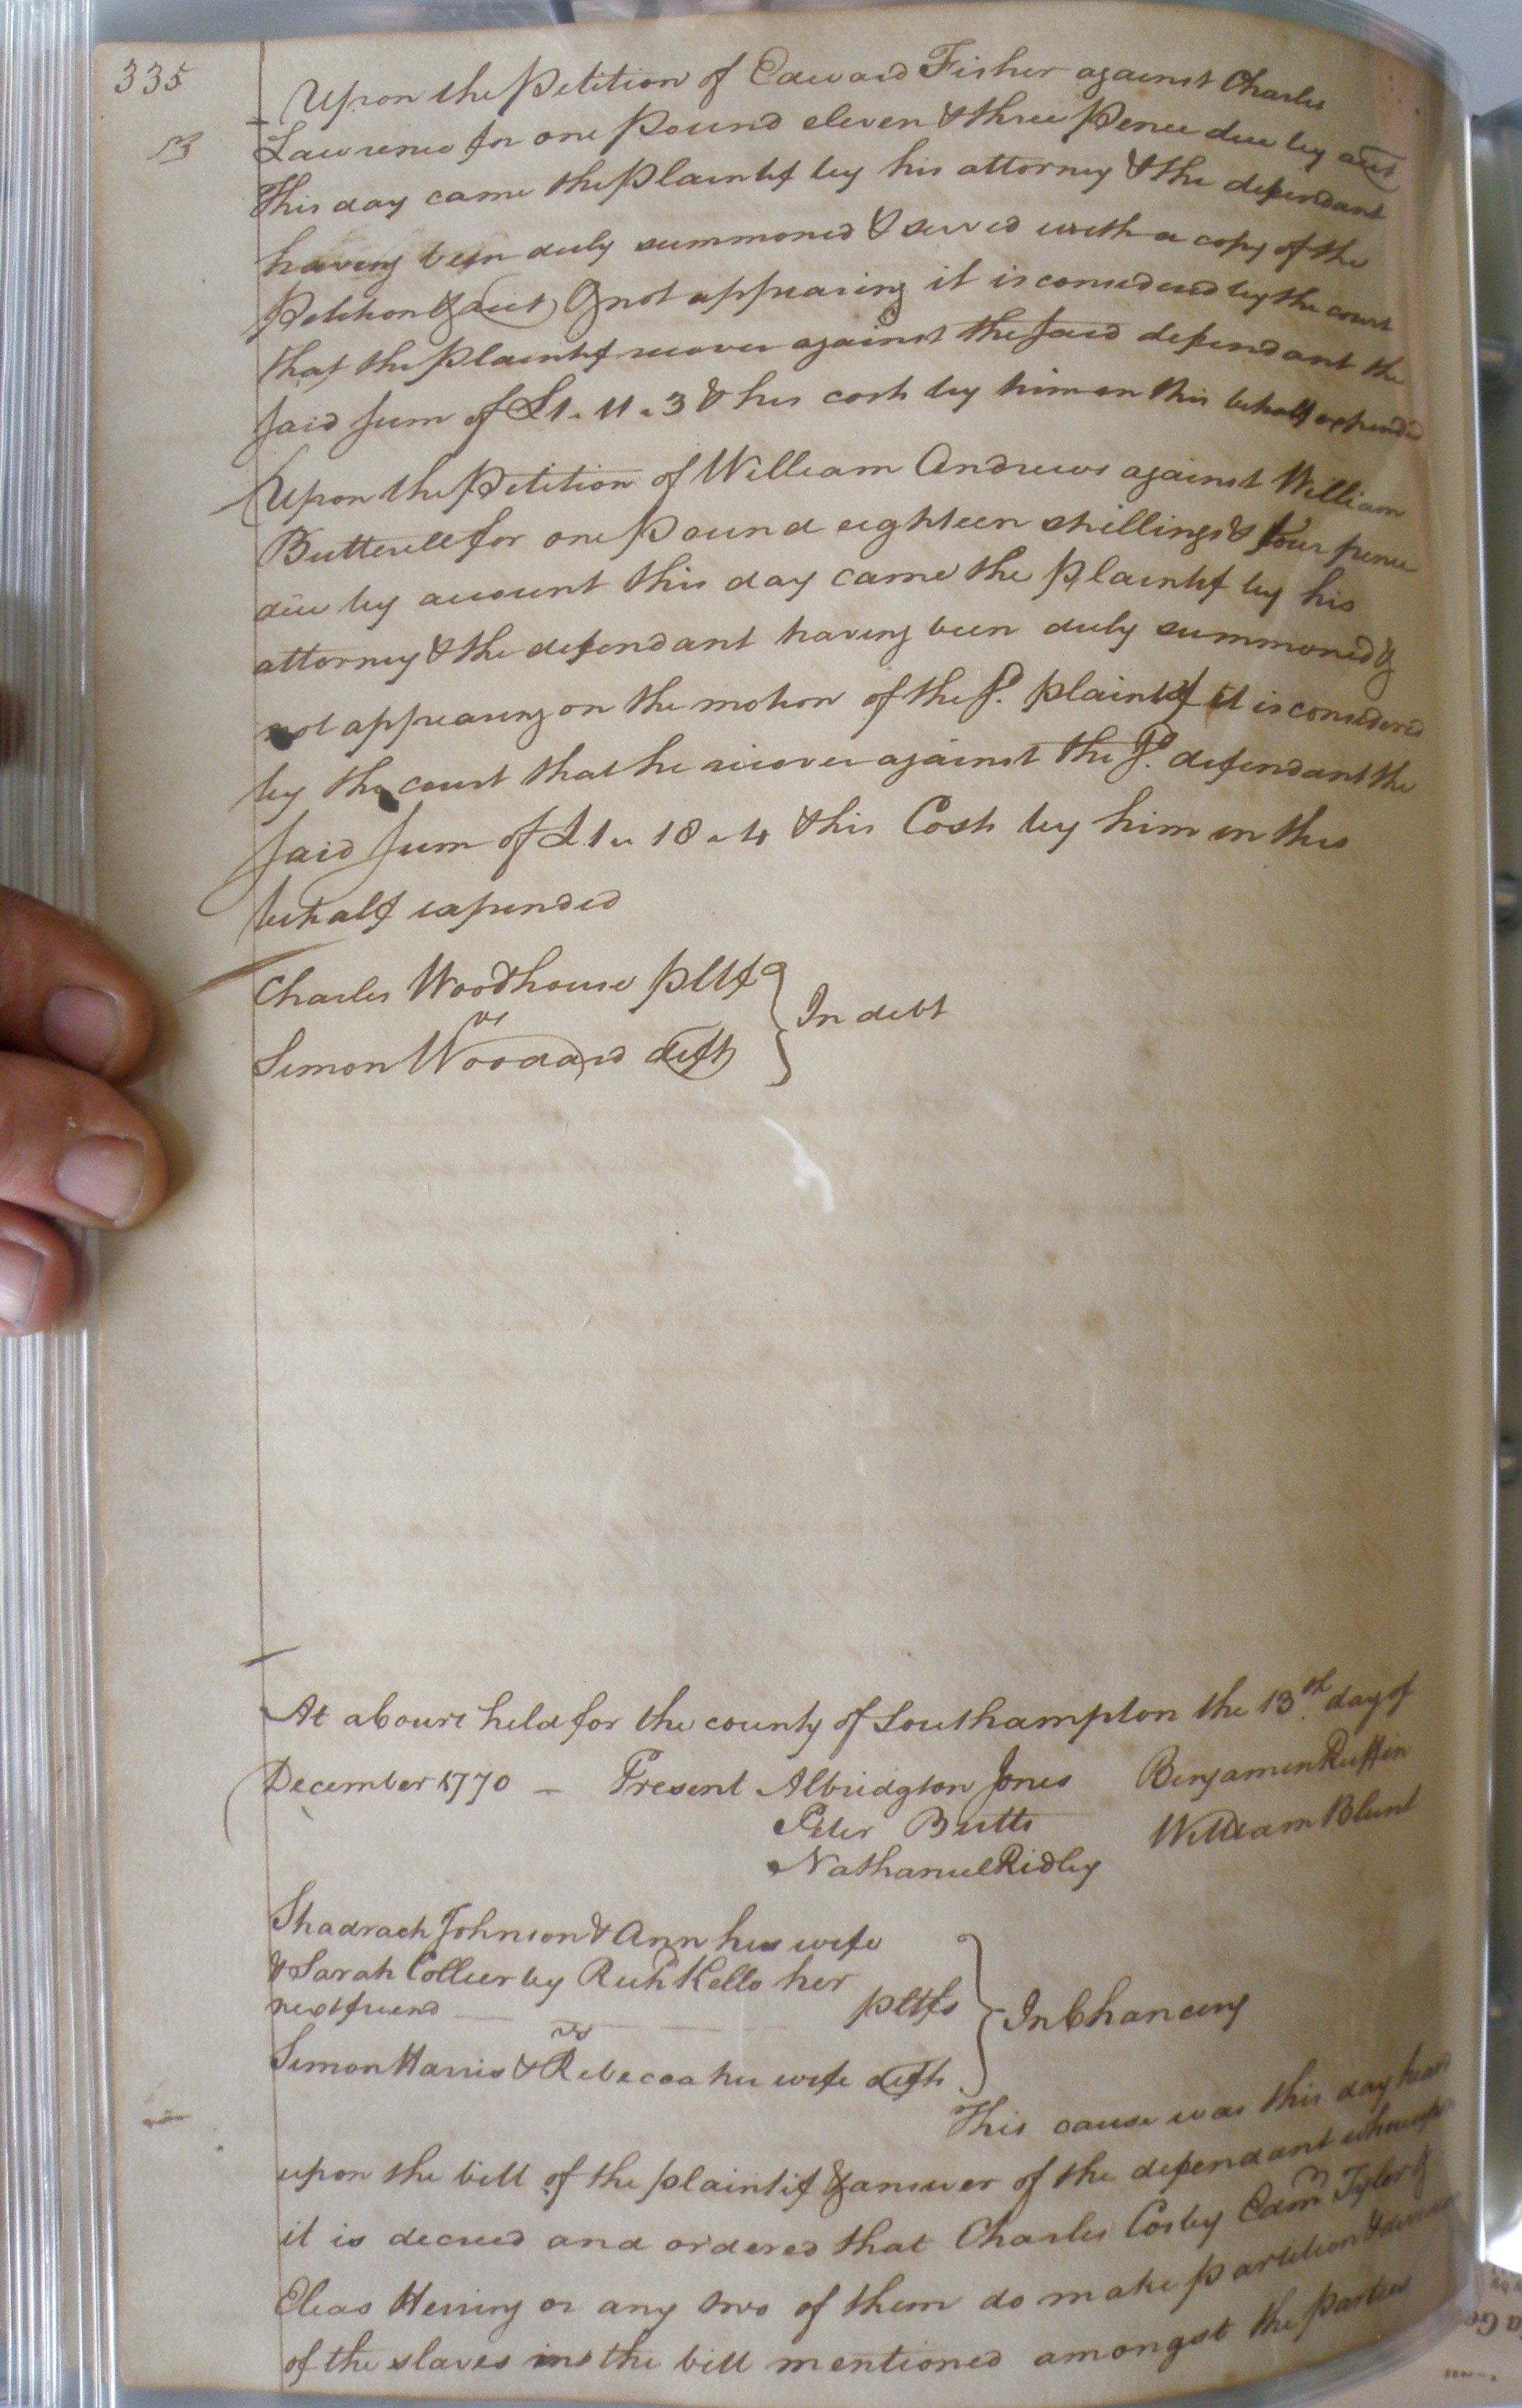 335
Upon the Petition of Edward Fisher against Charles
Lawrence for one Pound eleven & three Pence due by acct
This day came the Plaintif by his attorney & the defendant
having been duly summoned & served with a copy of the
Petition & acct & not appearing it is considered by the court
that the Plaintif recover against the said defendant the
said sum of £1.11.3 & his costs by him in this behalf expended
Upon the Petition of William Andrews against William
for one Pound eighteen shillings & four pence
due by account this day came the plaintif by his
attorney & the defendant having been duly summoned &
not appearing on the motion of the sd. plaintif it is considered
by the court that he recover against the sd. defendant the
said sum of £1.18.4 & his Costs by him in this
behalf expended
Charles Woodhouse pltf
vs
Simon Woodard deft
In debt
At a Court held for the county of Southampton the 13th. day of
December 1770 — Present Albridgton Jones Benjamin Ruffin
Peter Butts William Blunt
Nathaniel Ridley
Shadrach Johnson & Ann his wife
& Sarah Collier by Rich Kello her
next friend — — — — pltfs
vs
In Chancery
Simon Harris & Rebecca his wife defts
This cause was this day heard
upon the bill of the plaintif & answer of the defendant whereupon
it is decreed and ordered that Charles Cosby Edmd Tyler &
Elias Herring or any two of them do make partition &
of the slaves in the bill mentioned amongst the parties